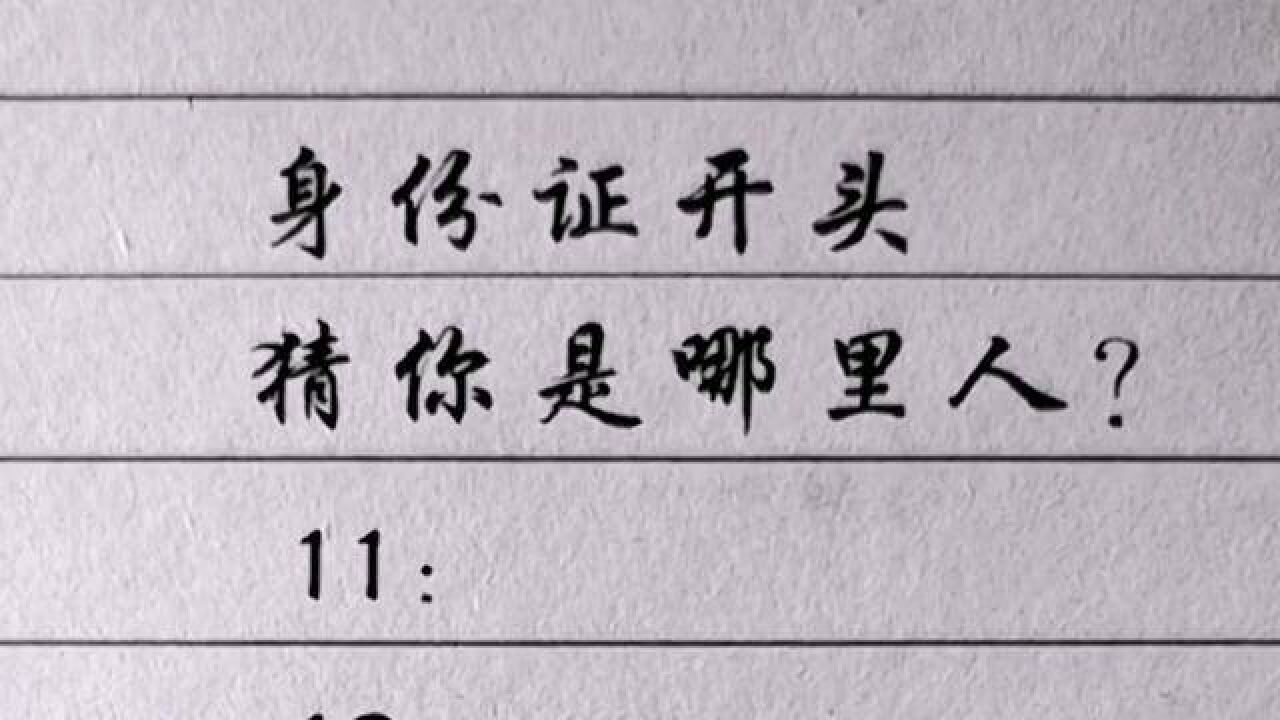 身份证开头
猜你是哪里人?
11: